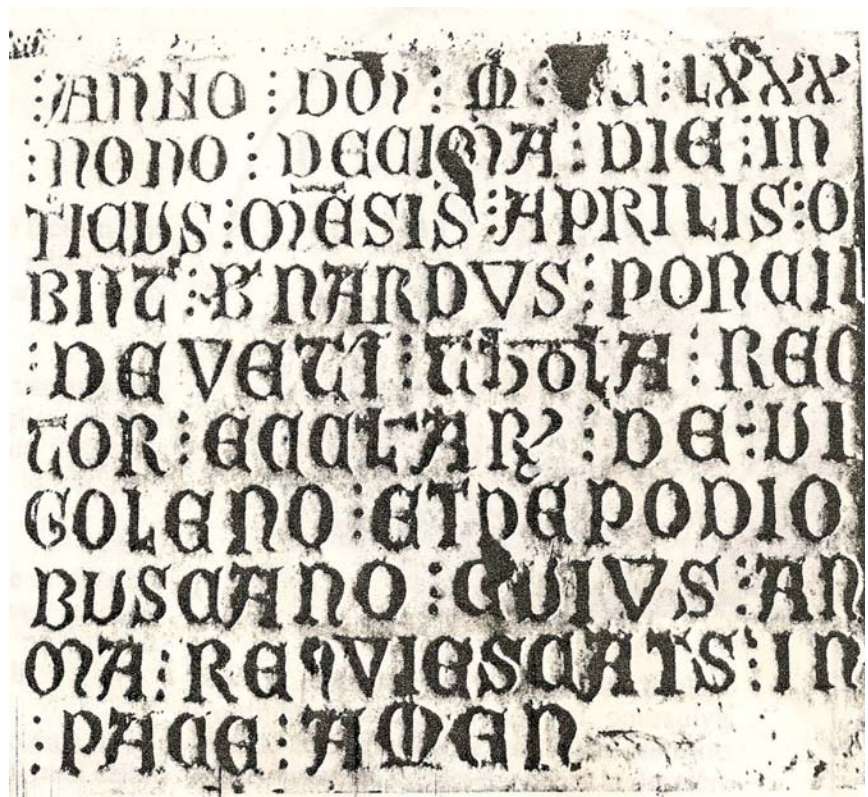 :ANNO : DOI : M : LXXX
: NONO : DECIMA : DIE : IN
TICUS : MESIS : APRILIS : O
BIIT : BNARDVS : PONCII
: DE VETI : : REC
TOR : ECCLAR : DE : VI
GOLENO : ET DE PODIO
BUSCANO : CUIVS : AN
MA : REQVIESCATS : IN
: PACE : AMEN